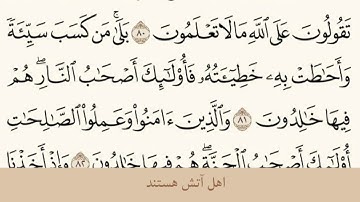 تَقُولُونَ عَلَى ٱللَّهِ مَا لَا تَعۡلَمُونَ ٨٠ بَلَىٰۚ مَن كَسَبَ سَيِّئَةٗ
وَأَحَٰطَتۡ بِهِۦ خَطِيٓـَٔتُهُۥ فَأُوْلَٰٓئِكَ أَصۡحَٰبُ ٱلنَّارِۖ هُمۡ
فِيهَا خَٰلِدُونَ ٨١ وَٱلَّذِينَ ءَامَنُواْ وَعَمِلُواْ ٱلصَّٰلِحَٰتِ
أُوْلَٰٓئِكَ أَصۡحَٰبُ ٱلۡجَنَّةِۖ هُمۡ فِيهَا خَٰلِدُونَ ٨٢ وَإِذۡ أَخَذۡنَا
اهل آتش هستند